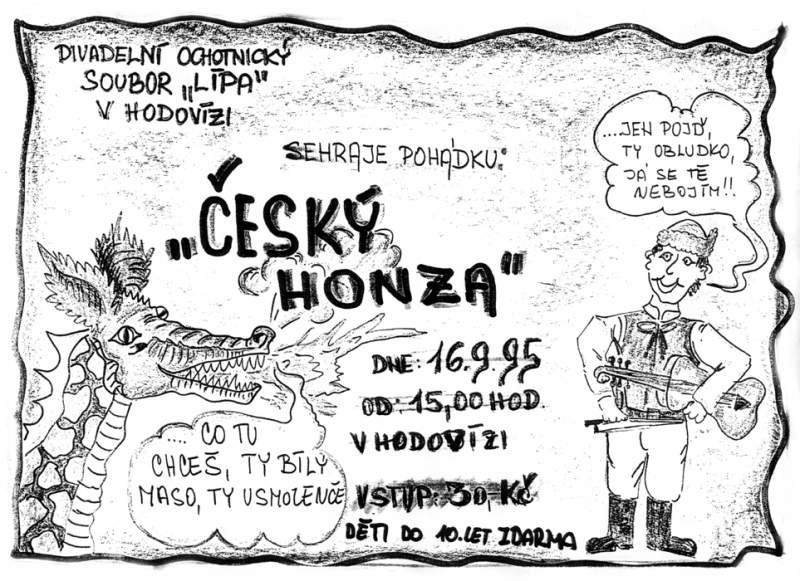 DIVADELNÍ OCHOTNICKÝ
SOUBOR „LÍPA"
V HODOVÍZI
SEHRAJE POHÁDKU:
„ČESKÝ
HONZA"
...JEN POJĎ,
TY OBLUDKO,
JÁ SE TĚ
NEBOJÍM!!.
DNE: 16.9.95
OD: 15,00 HOD.
V HODOVÍZI
VSTUP: 30,-KČ
DĚTI DO 10.LET ZDARMA
.... CO TU
CHCEŠ, TY BÍLÝ
MASO, TY USMOLENČE